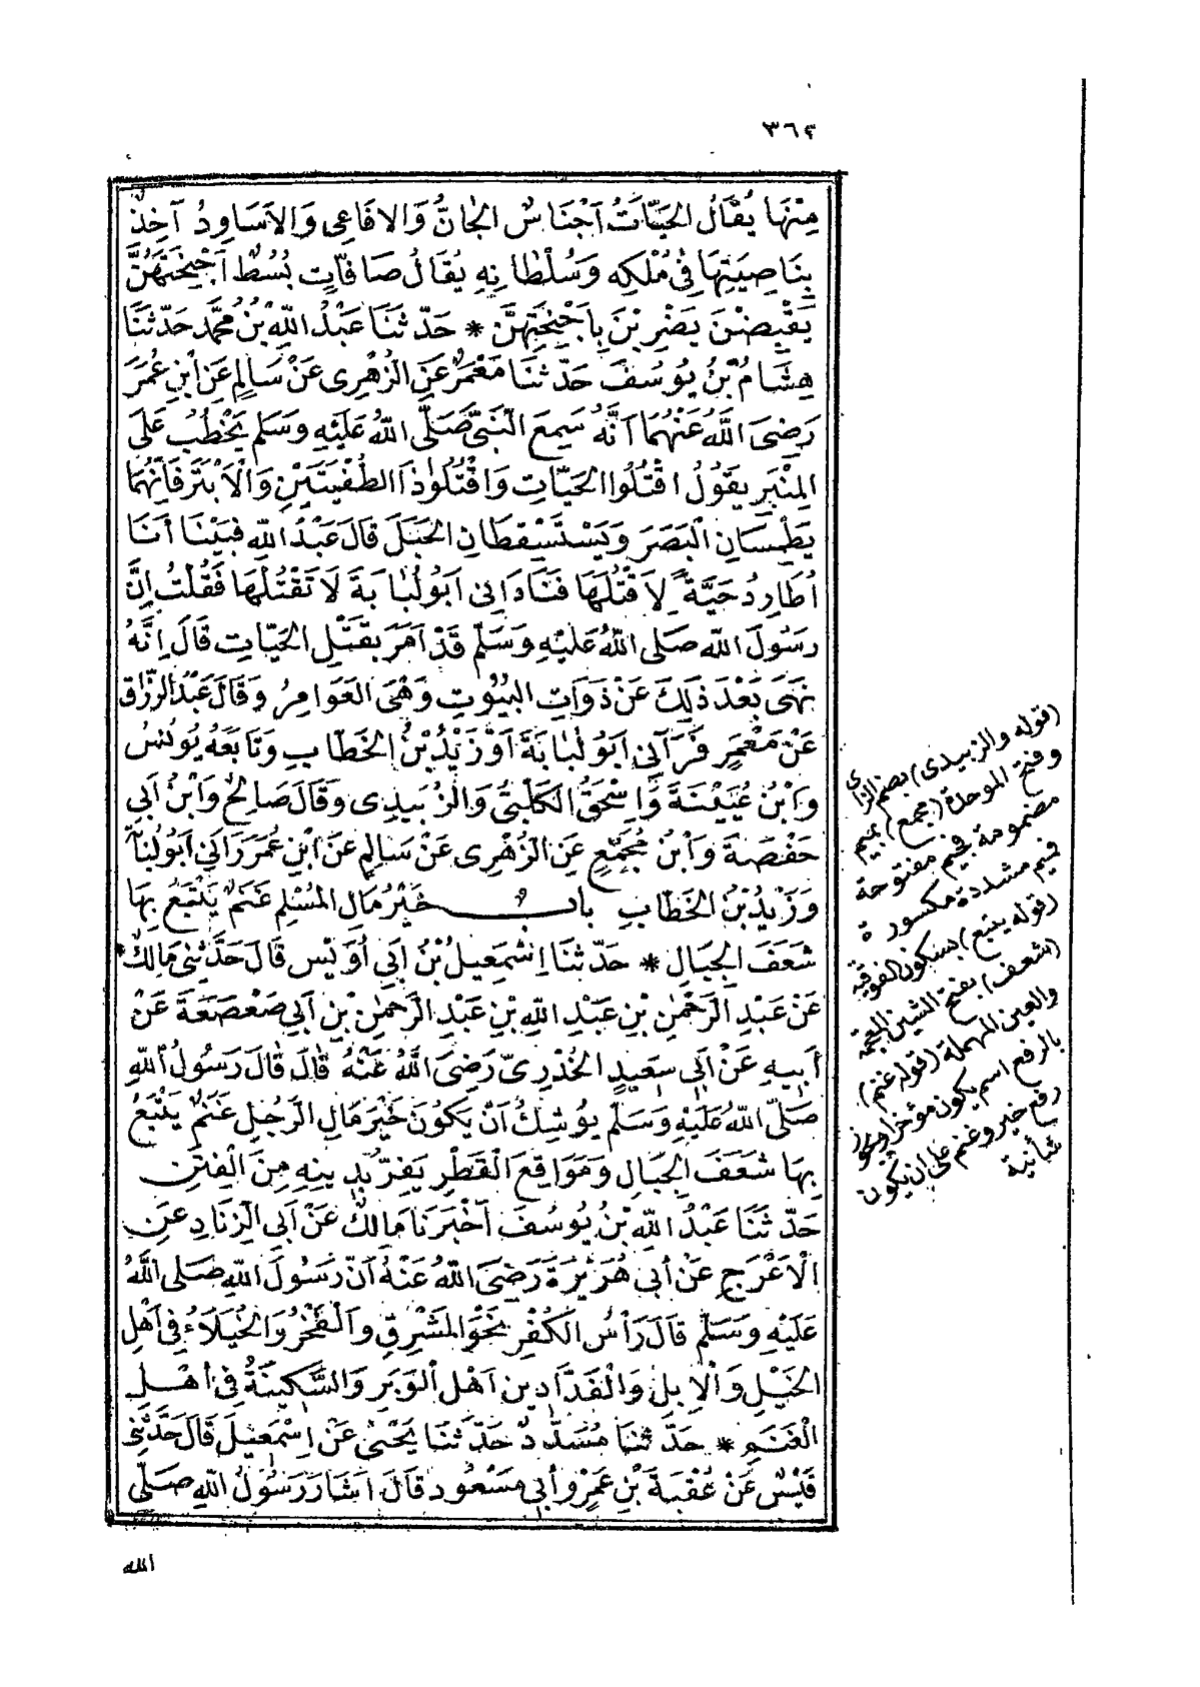 ٣٦٤
مِنْهَا يُقَالُ الحَيَّاتُ اَجْنَاسٌ الْجَانُّ وَالْافَاعِى وَالْاَسَاوِدُ آخِذٌ
بِنَاصِيَتِهَا فِى مُلْكِهِ وَسُلْطَانِهِ يُقَالُ صَافَّاتٍ بُسُطٌ اَجْنِحَتَهُنَّ
يَقْبِضْنَ يَضْرِبْنَ بِاَجْنِحَتِهِنَّ * حَدَّثَنَا عَبْدُ اللّٰهِ بْنُ مُحَمَّدٍ حَدَّثَنَا
هِشَامُ بْنُ يُوسُفَ حَدَّثَنَا مَعْمَرٌ عَنِ الزُّهْرِى عَنْ سَالِمٍ عَنِ ابْنِ عُمَرَ
رَضِىَ اللّٰهُ عَنْهُمَا اَنَّهُ سَمِعَ النَّبِىَّ صَلَّى اللّٰهُ عَلَيْهِ وَسَلَّم يَخْطُبُ عَلَى
المِنْبَرِ يَقُولُ اقْتُلُوا الحَيَّاتِ وَاقْتُلُوا ذَا الطُّفْيَتَيْنِ وَالْاَبْتَرَ فَاِنَّهُمَا
يَطْمِسَانِ الْبَصَرَ وَيَسْتَسْقِطَانِ الحَبَلَ قَالَ عَبْدُ اللّٰهِ فَبَيْنَا اَنَا
اُطَارِدُ حَيَّةً لِاَقْتُلَهَا فَنَادَانِى اَبُو لُبَابَةَ لَا تَقْتُلْهَا فَقُلْتُ اِنَّ
رَسُولَ اللّٰه صَلَى اللّٰهُ عَلَيْهِ وَسَلَّم قَدْ اَمَرَ بِقَتْلِ الحَيَّاتِ قَالَ اِنَّهُ
نَهَى بَعْدَ ذٰلِكَ عَنْ ذَوَاتِ البُيُوتِ وَهْىَ العَوَامِرُ وَقَالَ عَبْدُ الرَّزَّاق
عَنْ مَعْمَرٍ فَرَآنِى اَبُو لُبَابَةَ اَوْ زَيْدُ بْنُ الخَطَّابِ وَتَابَعَهُ يُونُسُ
وَابْنُ عُيَيْنَةَ وَاِسْحٰقُ الكَلْبِىُّ وَالزُّبَيدِى وَقَالَ صَالِحٌ وَابْنُ اَبِى
حَفْصَةَ وَابْنُ مُجَمِّعٍ عَنِ الزُّهْرِى عَنْ سَالِمٍ عَنِ ابْنِ عُمَرَ رَاٰنِى اَبُو لُبَابَةَ
وَزَيْدُ بْنُ الخَطَّابِ بابٌ خَيْرُ مَالِ المُسْلِمِ غَنَمٌ يَتْبَعُ بِهَا
شَعَفَ الجِبَالِ * حَدَّثَنَا اِسْمٰعِيلُ بْنُ اَبِى اُوَيْسٍ قَالَ حَدَّثَنِى مَالِكٌ
عَنْ عَبْدِ الرَّحْمٰنِ بْنِ عَبْدِ اللّٰهِ بْنِ عَبْدِ الرَّحْمٰنِ بْنِ اَبِى صَعْصَعَةَ عَنْ
اَبِيهِ عَنْ اَبِى سَعِيدٍ الخُدْرِىّ رَضِىَ اللّٰهُ عَنْهُ قَالَ قَالَ رَسُولُ اللّٰهِ
صَلَّى اللّٰهُ عَلَيْهِ وَسَلَّم يُوشِكُ اَنْ يَكُونَ خَيْرَ مَالِ الرَّجُلِ غَنَمٌ يَتْبَعُ
بِهَا شَعَفَ الجِبَالِ وَمَوَاقِعَ الْقَطْرِ يَفِرُّ بِدِينِهِ مِنَ الْفِتَنِ
حَدَّثَنَا عَبْدُ اللّٰه بْنُ يُوسُفَ اَخْبَرَنَا مَالِكٌ عَنْ اَبِى الزِّنَادِ عَنِ
الْاَعْرَجِ عَنْ اَبِى هُرَيْرَةَ رَضِىَ اللّٰهُ عَنْهُ اَنَّ رَسُولَ اللّٰهِ صَلَى اللّٰهُ
عَلَيْهِ وَسَلَّم قَالَ رَأْسُ الكُفْرِ نَحْوَ المَشْرِقِ وَالْفَخْرُ وَالخُيَلَاءُ فِى اَهْلِ
الخَيْلِ وَالْاِبِلِ وَالْفَدَّادِينَ اَهْلِ الْوَبَرِ وَالسَّكِينَةُ فِى اَهْلِ
الْغَنَمِ * حَدَّثَنَا مُسَدَّدٌ حَدَّثَنَا يَحْيَى عَنْ اِسْمٰعِيلَ قَالَ حَدَّثَنِى
قَيْسٌ عَنْ عُقْبَةَ بْنِ عَمْرٍو اَبِى مَسْعُود قَالَ اَشَارَ رَسُولُ اللّٰهِ صَلَّى
الله
(قوله والزبيدى) بضم الزاى
وفتح الموحدة (مجمع) بميم
مضمومة فجيم مفتوحة
فميم مشددة مكسورة
(قوله يتبع) بسكون الفوقية
(شعف) بفتح الشين المعجمة
والعين المهملة (قوله غنم)
بالرفع اسم يكون مؤخرا ويجوز
رفع خير وغنم على ان يكون
شأنية